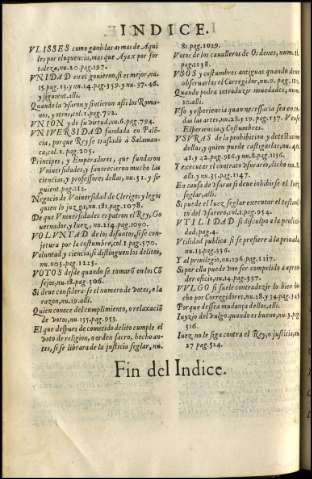 INDICE.
VLISSES como ganò las armas de Aqui
les por eloquencia, mas que Ayax por for
taleza, nu.20.pag.197.
VNIDAD en el gouierno, si es mejor, nu.
y siguient. alli.
Quando la vsaron y siuieron assi los Roma
nos, y otros, col.1.pag.702.
VNION y de su virtud, nu.6.pag.794.
VNIVERSIDAD fundada en Palẽ
cia, por que Rey se traslado a Salaman-
ca, col.1.pag.205.
Principes, y Emperadores, que fundaron
Vniuersidades, y fauorecieron mucho las
ciencias, y professores dellas, nu.51. y si-
guient. pag.212.
Negocio de Vniuersidad de Clerigos y legos
quien lo juzga, nu.181.pag.1078.
De que Vniuersidades es patron el Rey, Go
uernador, y luez, nu.214.pag.1090.
VOLVNTAD de los difuntos, si se con-
jetura por la costumbre, col.1.pag.570.
Voluntad y ciencia, si distinguen los delitos,
nu.105.pag.1225.
VOTOS desde quando se numerã en los Cõ
sejos, nu.18.pag.506.
Si deue considerarse el numero de votos, o la
razon, nu.19.alli.
Quien conoce del cumplimiento, o relaxaciõ
de votos, nu.155.pag.953.
El que despues de cometido delito cumple el
voto de religion, orden sacro, hecho an-
tes, si se librara de la justicia seglar, nu.
81.pag.1029.
Votos de los caualleros de Ordenes, num.11.
pag.1138.
VSOS y costumbres antiguas quando deuẽ
Quando podra introduzir nouedades, num.
10.alli.
Vso y experiencia quan necessaria sea en to-
das las artes, nu.28.pag.137. Verbo
Esperiencia, y Costumbres.
VSVRAS de la prohibicion y detestacion
dellas, y quien puede castigarlas, nu.40.
En causa de vsuras si deue inhibirse el luez
seglar, alli.
Si puede el luez seglar executar el testamẽ
to del vsurero, col.2.pag.954.
VTILIDAD si disculpa a la perdici
dad, pag.4.
Vtilidad publica si se prefiere a la priuada,
nu.15.pag.356.
Y al priuilegio, nu.196.pag.1117.
Si por ella puede vno ser compelido a aceptar
oficio, nu.24.pag.337.
VVLGO si suele contradezir lo bien he
cho por Corregidores, nu.28.y 34.pag.343
Porque dessea mudança dellos, alli.
Iuyzio del vulgo, quando es bueno, nu.3.pag.
516.
Iuez, no le siga contra el Rey, o justicia, nu.
27.pag.524.
Fin del Indice.